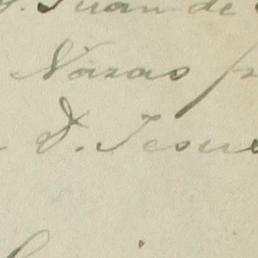 D. Juan de
Nazas
D. Jesus